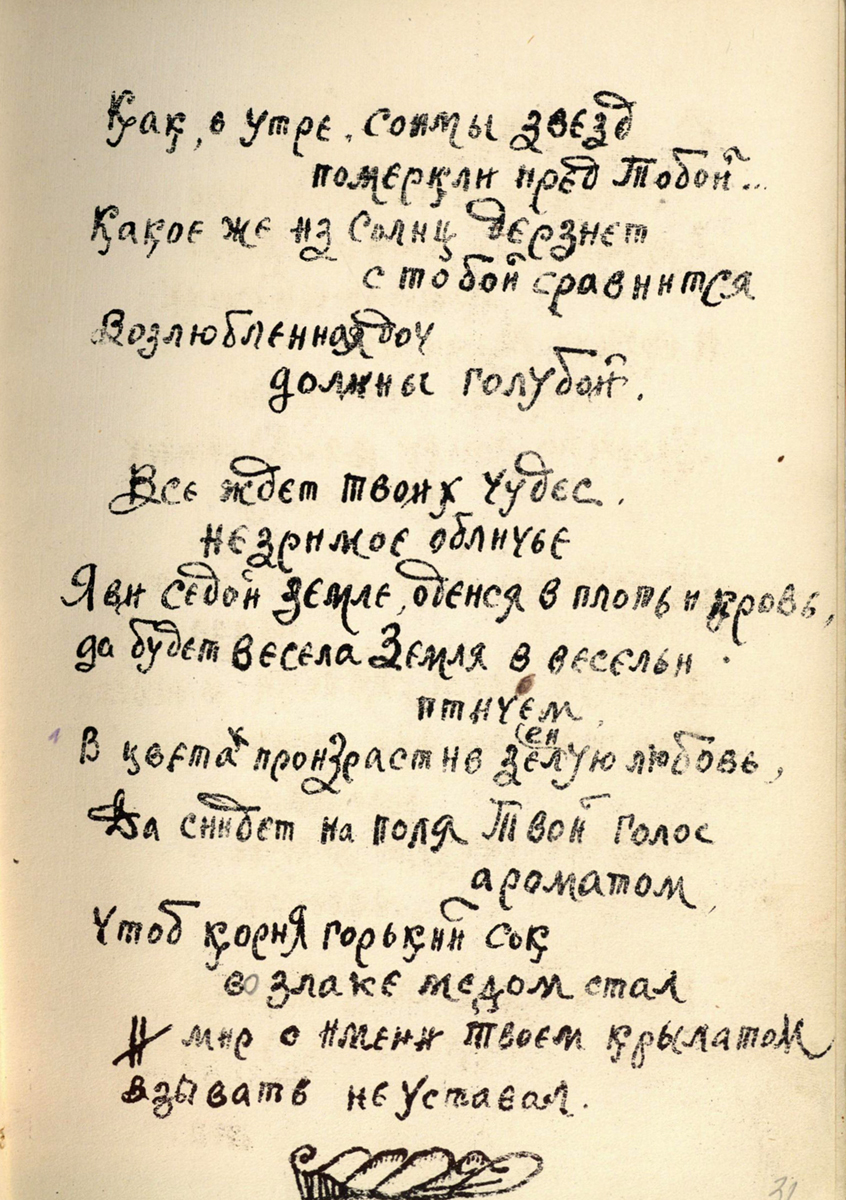 Как, о утре, сонмы звезд
померкли пред Тобой...
Какое же из Солнц дерзнет
с тобой сравнится
Возлюбленная доч
долины голубой.
Все ждет твоих чудес.
незримое обличье
Яви седой земле, оденся в плоть и кровь,
да будет весела Земля в весельи
птичем,
В цветах произрастив зеленую любовь,
Да снидет на поля Твой голос
ароматом,
Чтоб корня горький сок
во злаке медом стал
И мир о имени твоем крылатом
взывать не уставал.
31